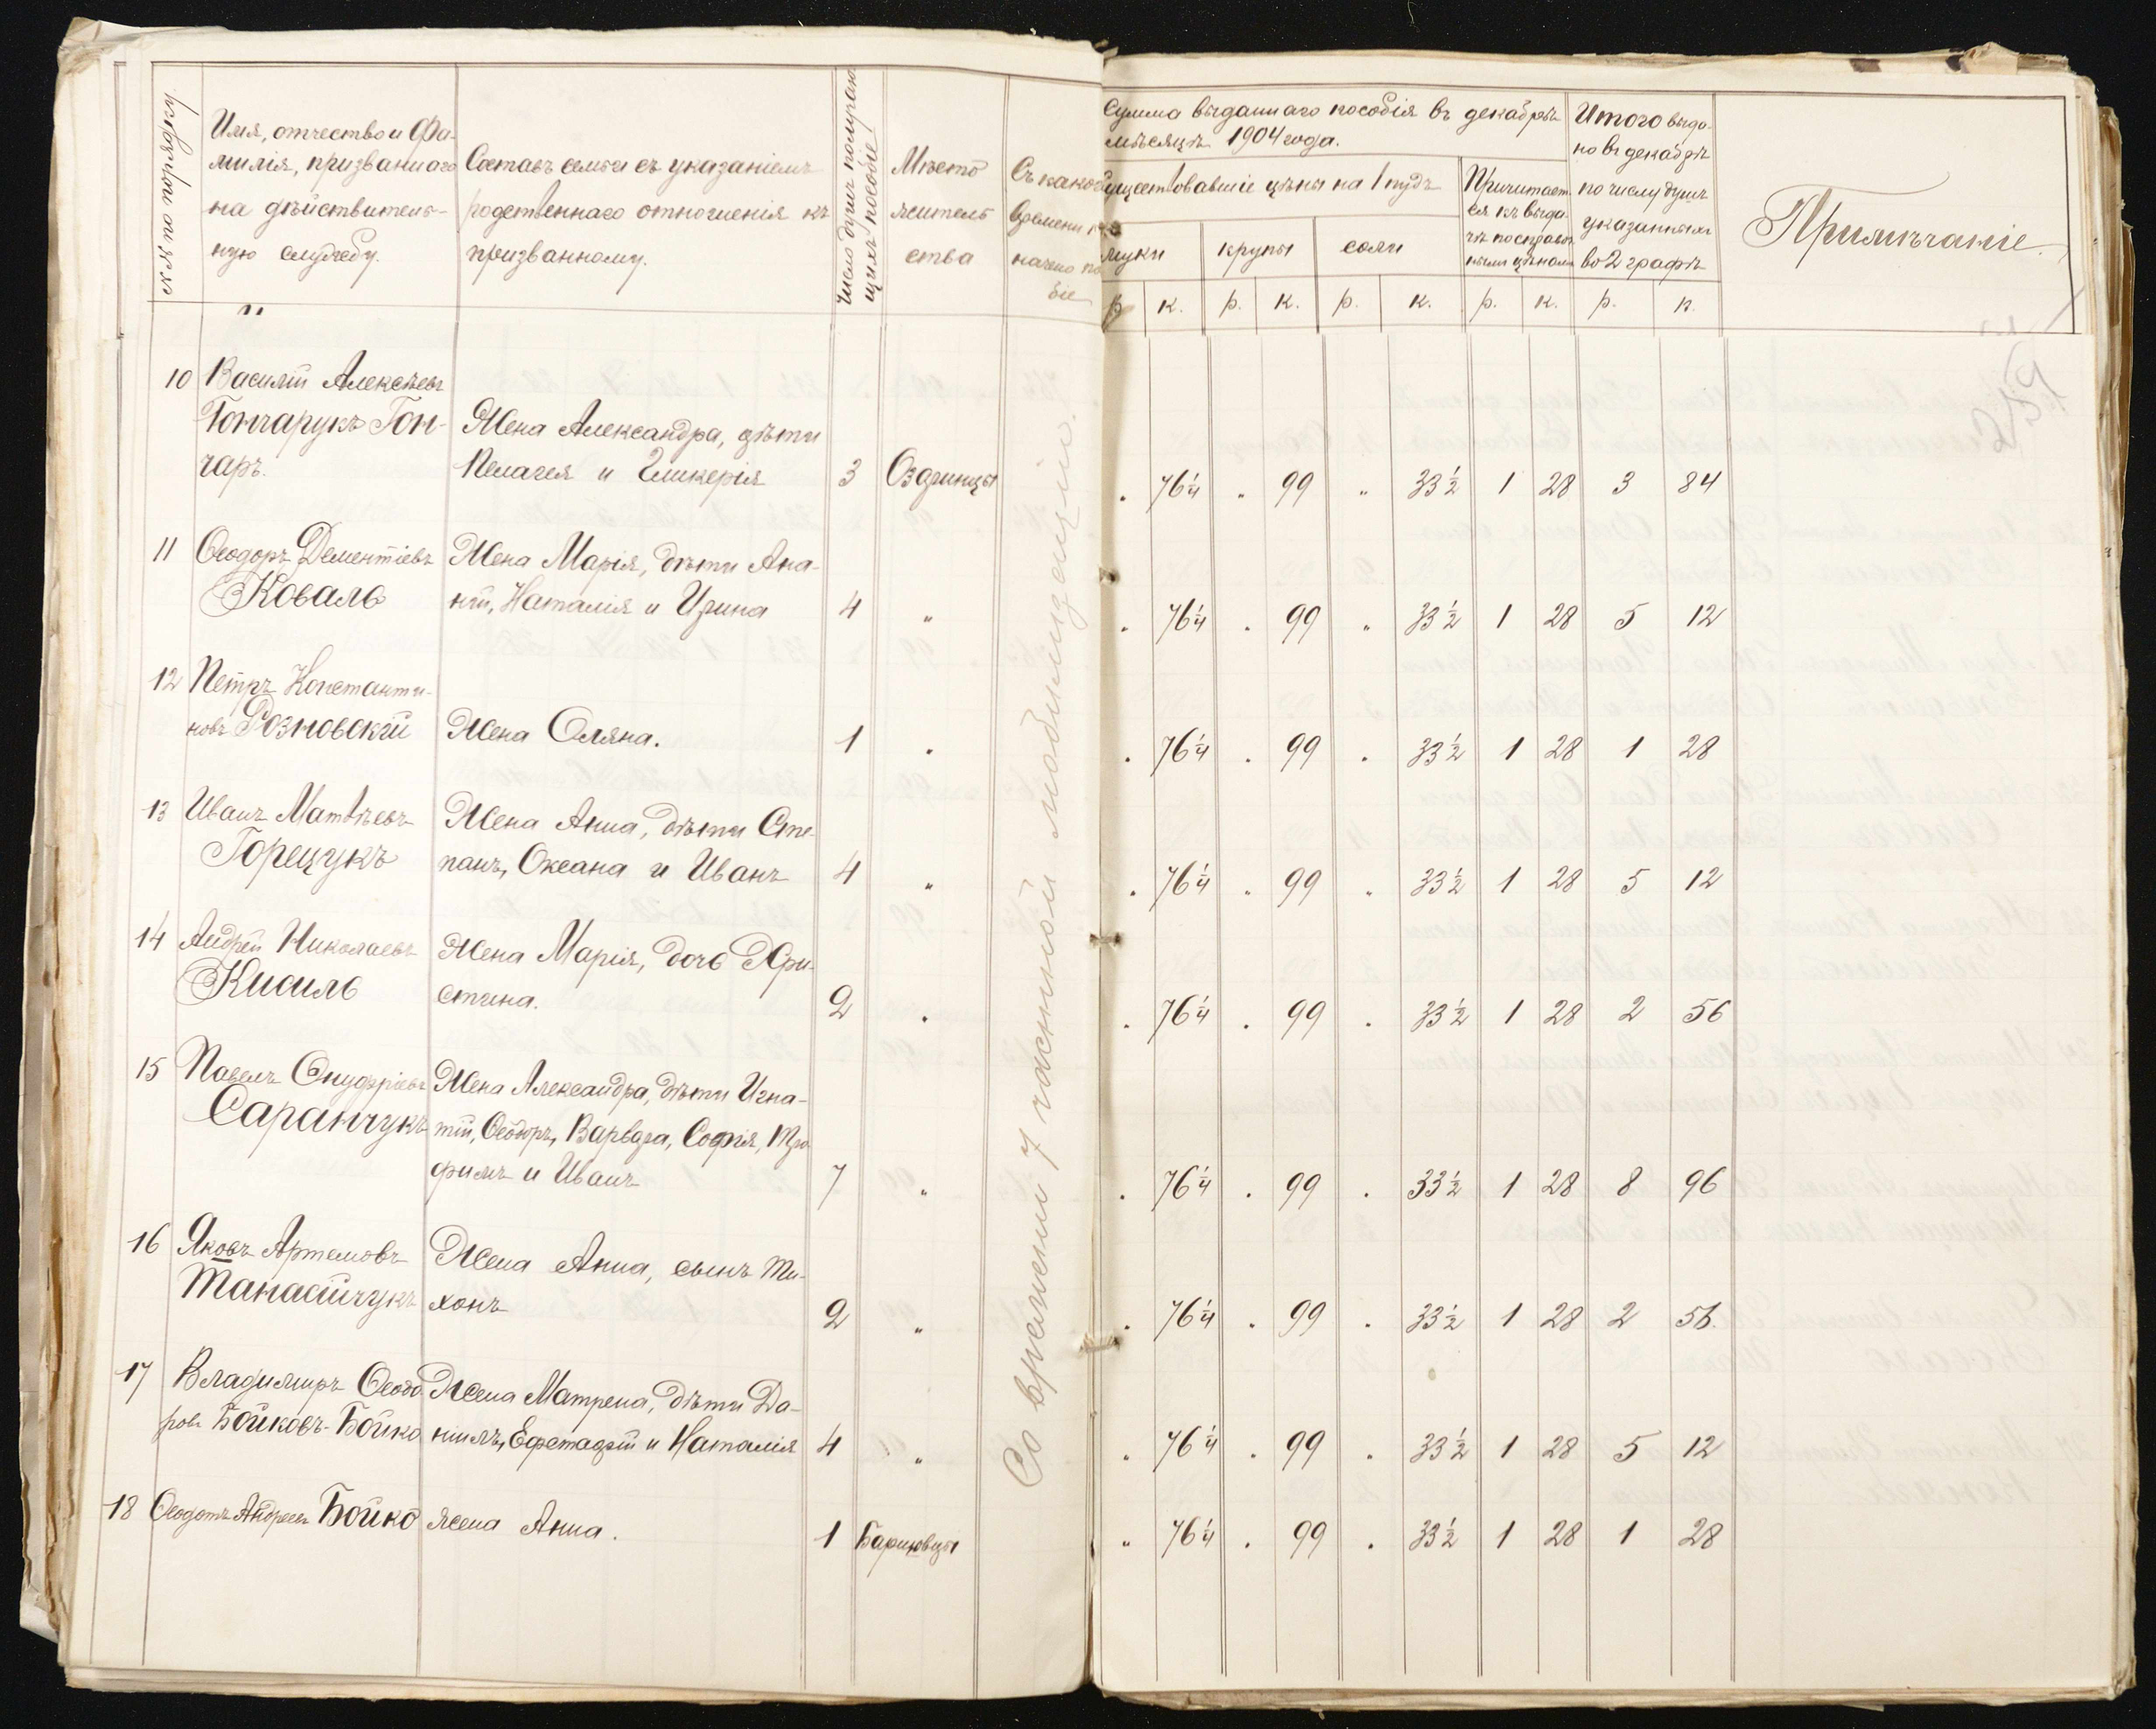 №№ по порядку.
Имя, отчество и Фа-
милія, призваннаго
на дѣйствитель-
ную службу.
Составъ семьи съ указаніемъ
родственнаго отношенія къ
призванному.
Число душъ получаю
щихъ пособіе
Мѣсто
житель
ства
Съ какого
времени
начено по
біе
Сумма выданнаго пособія въ декабрѣ
мѣсяцѣ 1904 года.
уществовавшіе цѣны на 1 пудъ
муки
крупы
соли
Причитает
ся къ выда
чѣ по справоч
нымъ цѣнамъ
Итого выда-
но въ декабрѣ
по числу душъ
указанныхъ
во 2 графѣ
Примѣчаніе
р. к. р. к. р. к. р. к. р. к.
254
10 Василій Алексѣевъ
Гончарукъ Гон- Жена Александра, дѣти
чаръ. Пелагея и Гликерія 3 Оздгинцы . 76¼ " 99 " 33½ 1 28 3 84
11 Ѳеодоръ Дементіевъ Жена Марія, дѣти Ана-
Коваль ній, Наталія и Ирина 4 " . 76¼ . 99 " 33½ 1 28 5 12
12 Петръ Константи-
новъ Розновскій Жена Оляна. 1 . . 76¼ . 99 . 33½ 1 28 1 28
13 Иванъ Матвѣевъ Жена Анна, дѣти Сте-
Горещукъ панъ, Оксана и Иванъ 4 " . 76¼ . 99 " 33½ 1 28 5 12
14 Андрей Николаевъ Жена Марія, дочь Хри-
Кисиль стина. 2 . . 76¼ . 99 . 33½ 1 28 2 56
15 Павелъ Онуфріевъ Жена Александра, дѣти Игна-
Саранчукъ тій, Ѳеодоръ, Варвара, Софія, Тро
фимъ и Иванъ 7 " . 76¼ . 99 . 33½ 1 28 8 96
16 Яковъ Артемовъ Жена Анна, сынъ Ти-
Танасійчукъ хонъ 2 " . 76¼ . 99 . 33½ 1 28 2 56.
17 Владимиръ Ѳеодо Жена Матрена, дѣти Да-
ровъ Бойковъ-Бойко ніилъ, Евстафій и Наталія 4 " " 76¼ . 99 . 33½ 1 28 5 12
18 Ѳеодотъ Андреевъ Бойко жена Анна. 1 " 76¼ . 99 . 33½ 1 28 1 28
Со времени 7 частной мобилизаціи.